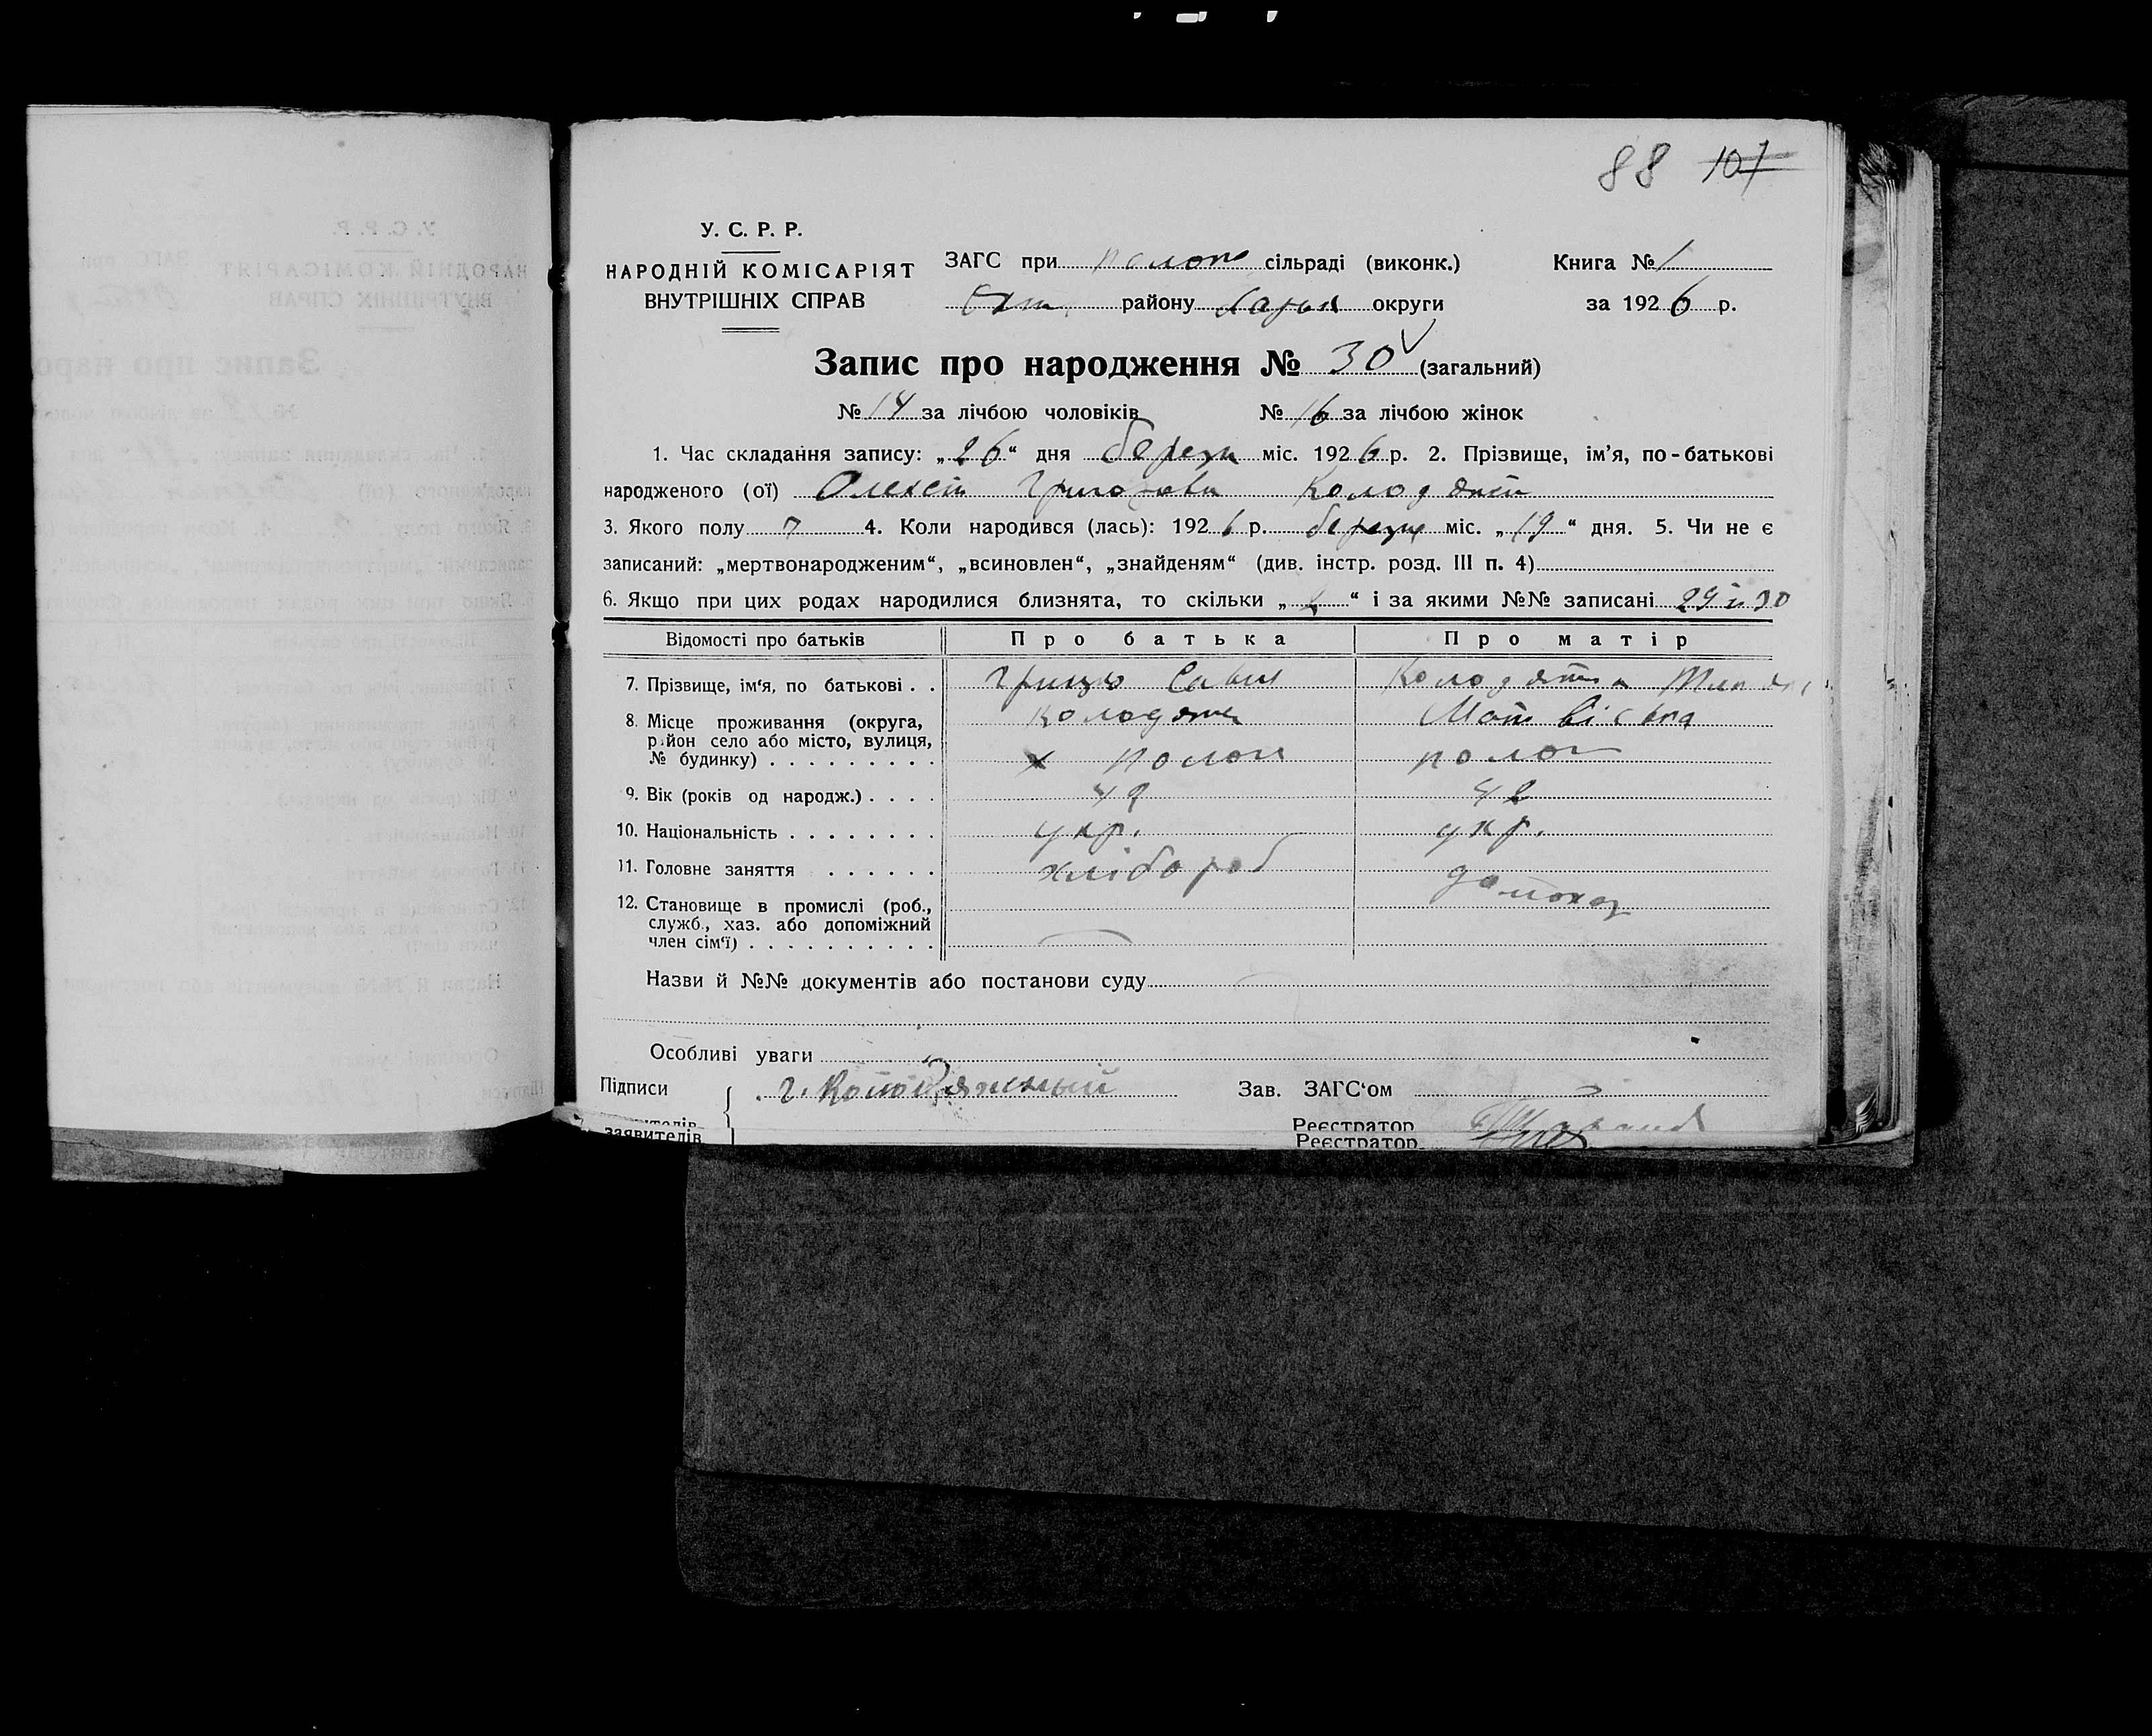 88 107
У. С. Р. Р.
НАРОДНІЙ КОМІСАРІЯТ
ВНУТРІШНІХ СПРАВ
ЗАГС при сільраді (виконк.)
району округи
Книга № 1
за 1926 р.
Запис про народження № 30 (загальний)
№ 14 за лічбою чоловіків № 16 за лічбою жінок
1. Час складання запису: „26“ дня березн міс. 1926 р. 2. Прізвище, ім'я, по-батькові
народженого (ої) Олексій Григорови
3. Якого полу 4. Коли народився (лась): 1926 р. березня міс. „19“ дня. 5. Чи не є
записаний: „мертвонародженим“, „всиновлен“, „знайденям“ (див. інстр. розд. III п. 4)
6. Якщо при цих родах народилися близнята, то скільки „2“ і за якими №№ записані 29 і 30
Відомості про батьків Про батька Про матір
7. Прізвище, ім'я, по батькові . . Грицько Сави
8. Місце проживання (округа, Матвієвна
район село або місто, вулиця,
№ будинку) . . . . . . . . . х
9. Вік (років од народж.) . . . . 42
10. Національність . . . . . . . . укр. укр.
11. Головне заняття . . . . . . хлібороб
домохоз
12. Становище в промислі (роб.,
служб., хаз. або допоміжний
член сім'ї) . . . . . . . . . .
Назви й №№ документів або постанови суду
Особливі уваги
Підписи Г. Колодяжный Зав. ЗАГС'ом
Реєстратор
заявителів Реєстратор